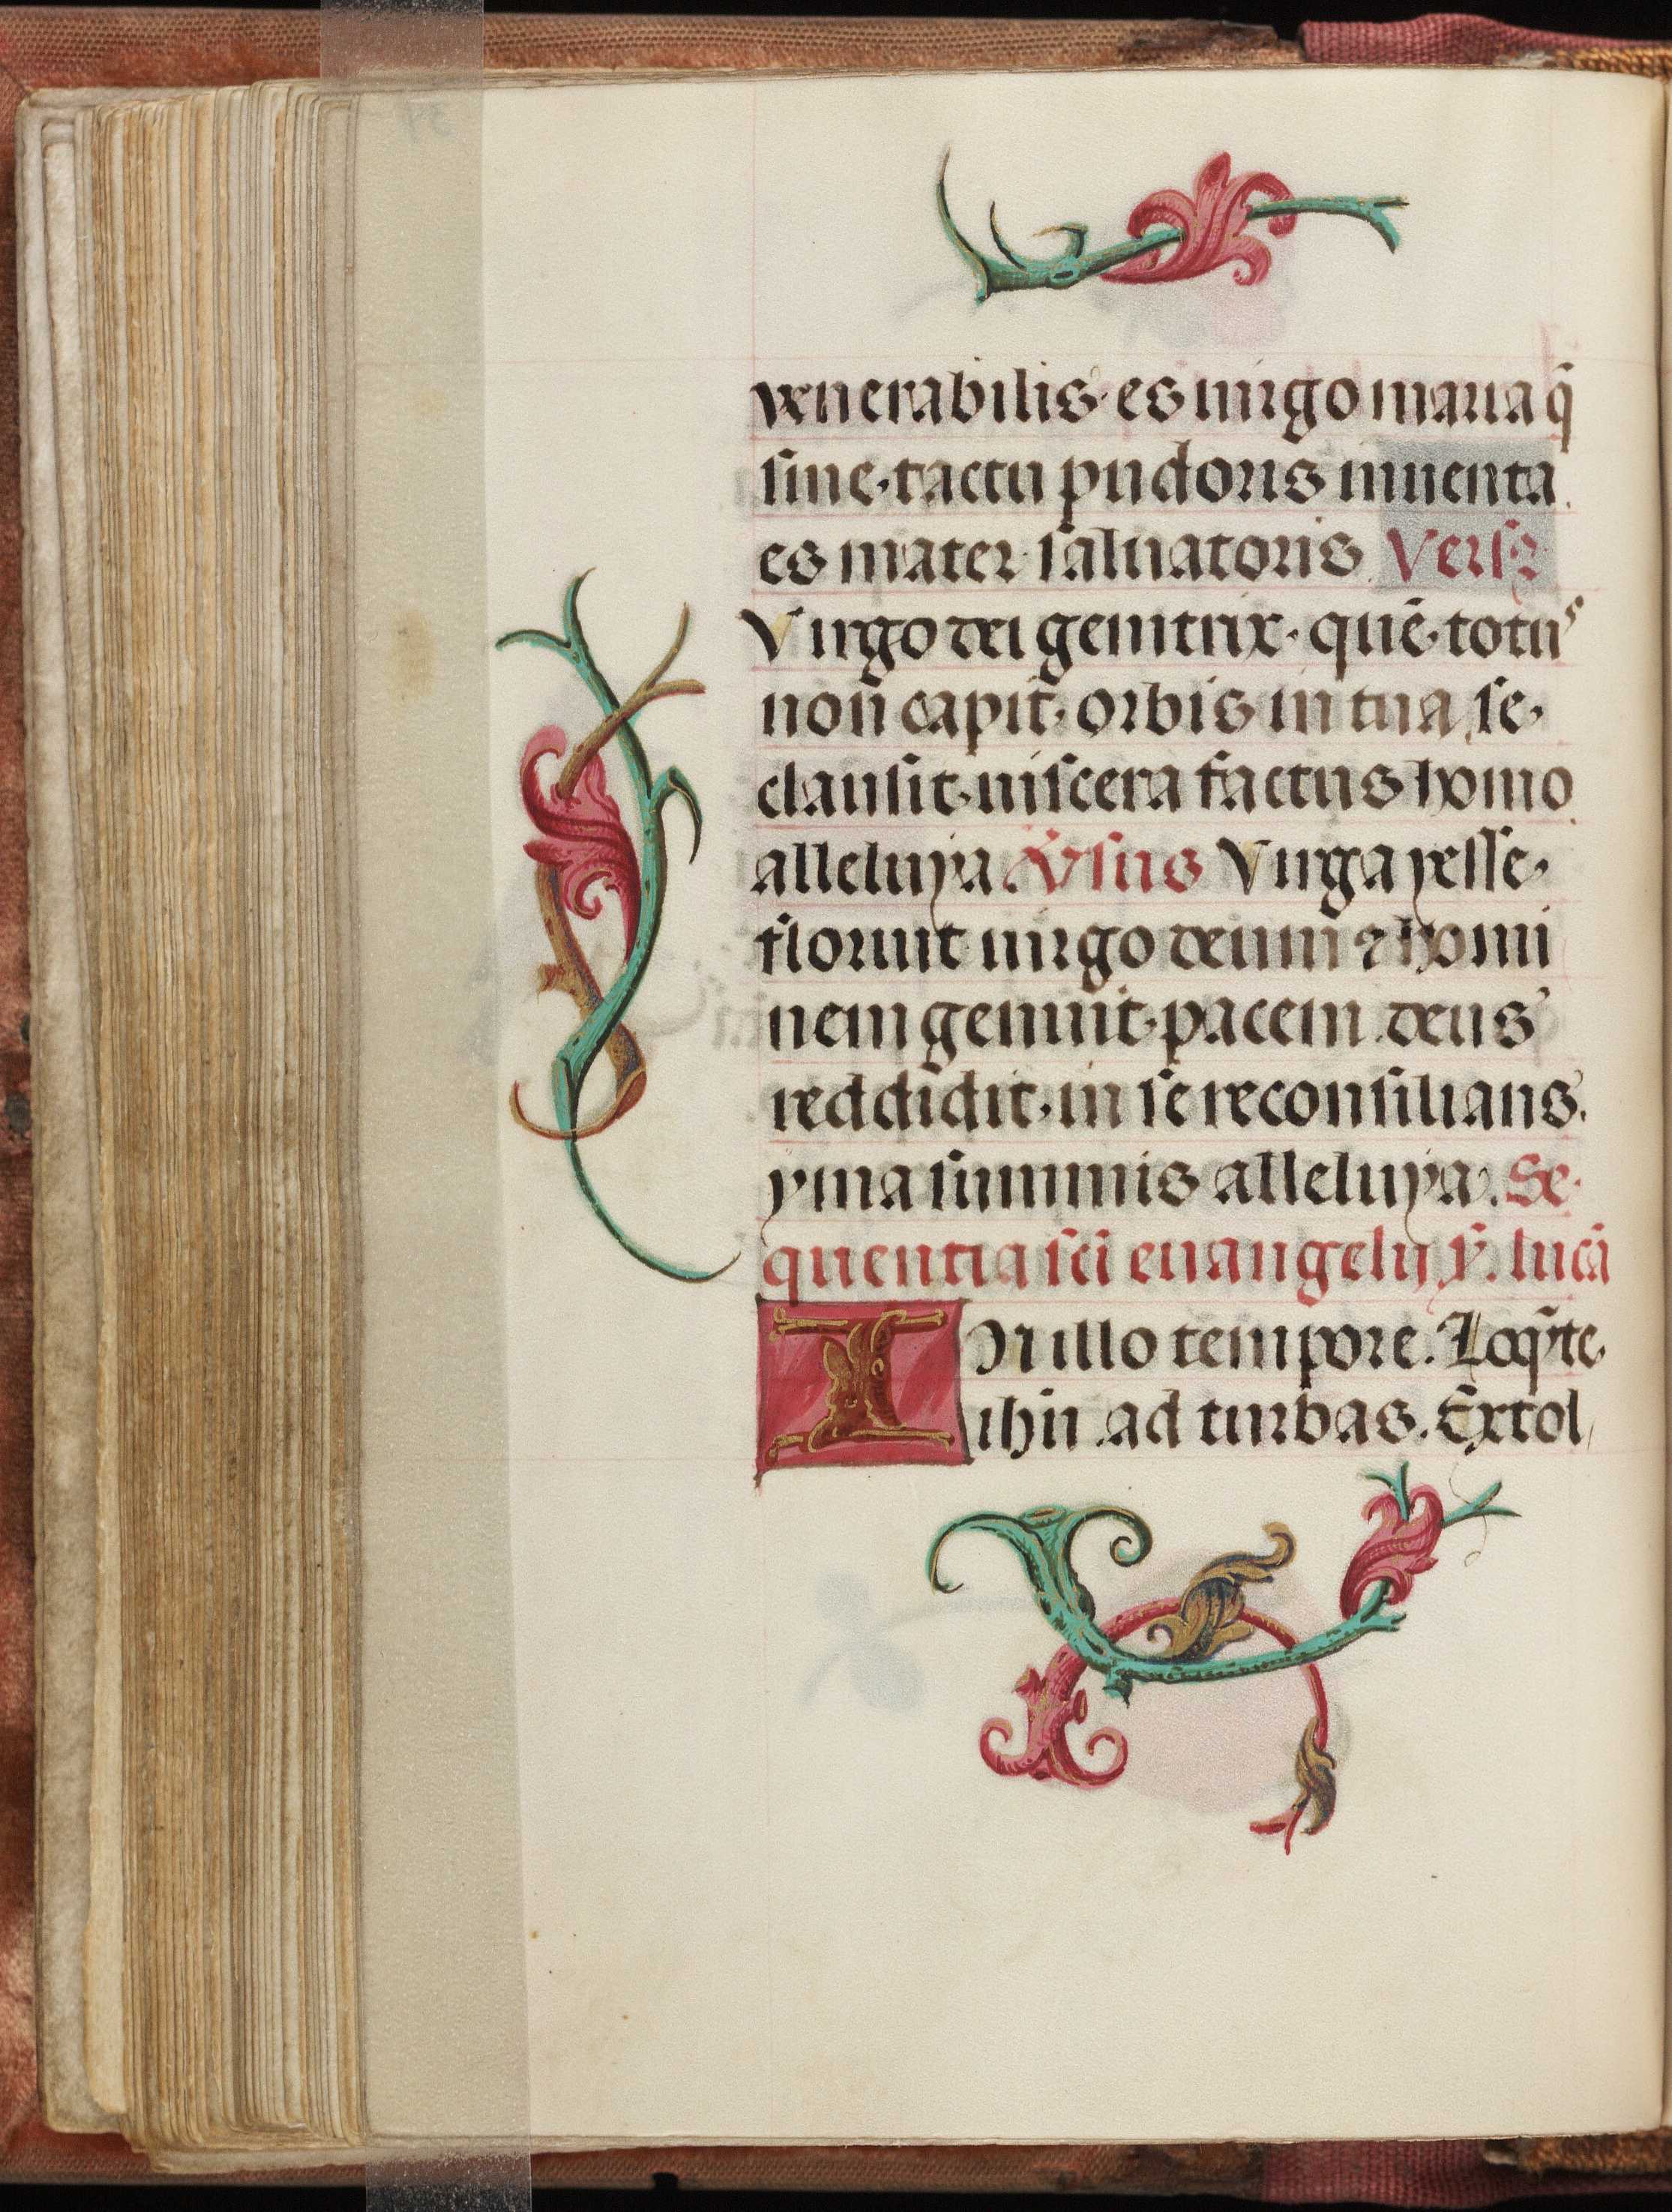 venerabilis es uirgo maria q̃
sine tactu pudoris inuenta
es mater saluatoris. Versꝫ
Virgo dei genitrix. quẽ totuˢ
non̄ capit̄. orbis in tua se
clausit uiscera factus homo
alleluya ℣sus Virga yesse
floruit uirgo deum̄ ⁊ homi
nem genuit pacem deus
reddidit. in se reconsilians.
yma summis alleluya. Se
quentia sc̄i euangelij. lucã
IN illo tempore. Loq̄te
ihũ ad turbas. Extol